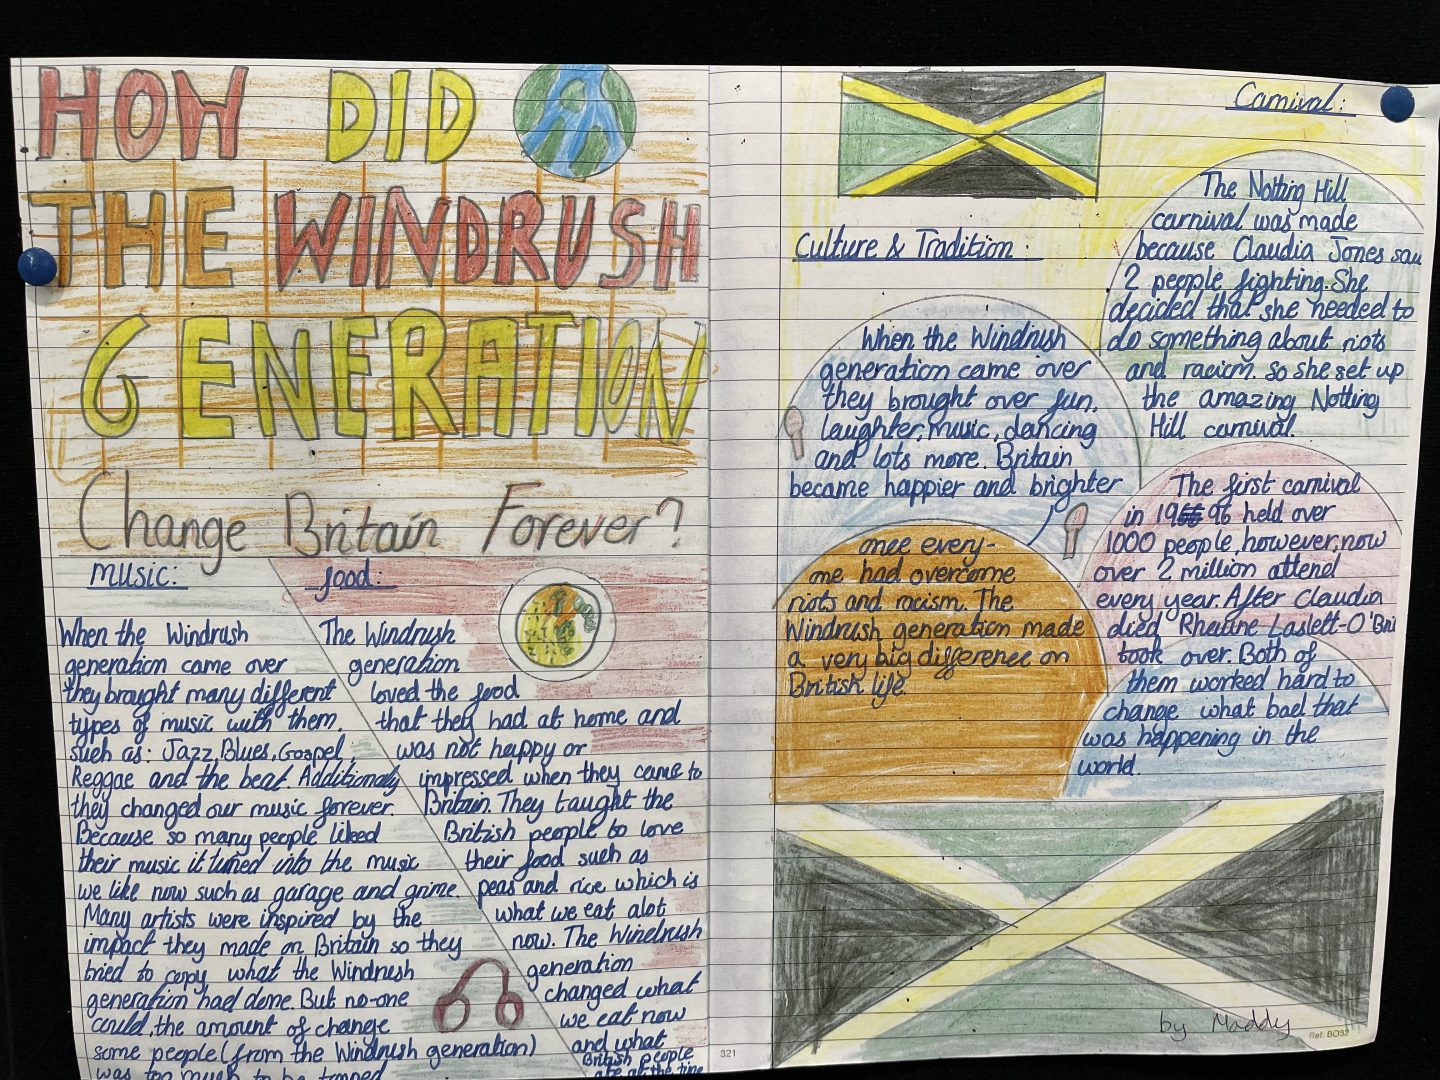 HOW DID
THE WINDRUSH
GENERATION
Change Britain Forever?
music:
When the Windrush
generation came over
they brought many different
types of music with them,
such as: Jazz, Blues, Gospel,
Reggae and the beat. Additionaly
they changed our music forever.
Because so many people liked
their music it turned into the music
we like now such as garage and grime.
Many artists were inspired by the
impact they made on Britain so they
tried to copy what the Windrush
generation had done. But no-one
could, the amount of change
some people (from the Windrush generation)
was too much to be
food:
The Windrush
generation
loved the food
that they had at home and
was not happy or
impressed when they came to
Britain. They taught the
British people to love
their food such as
peas and rice which is
what we eat alot
now. The Windrush
generation
changed what
we eat now
and what
British people
ate at the time
321
Culture & Tradition:
When the Windrush
generation came over
they brought over fun,
laughter, music, dancing
and lots more. Britain
became happier and brighter
once every-
one had overcome
riots and racism. The
Windrush generation made
a very big difference on
British life.
Carnival:
The Notting Hill
carnival was made
because Claudia Jones saw
2 people fighting. She
decided that she needed to
do something about riots
and racism. so she set up
the amazing Notting
Hill carnival.
The first carnival
in 19 96 held over
1000 people, however, now
over 2 million attend
every year. After Claudia
died Rhaune Laslett-O'Bri
took over. Both of
them worked hard to
change what bad that
was happening in the
world.
by Maddy
Ref: BO33